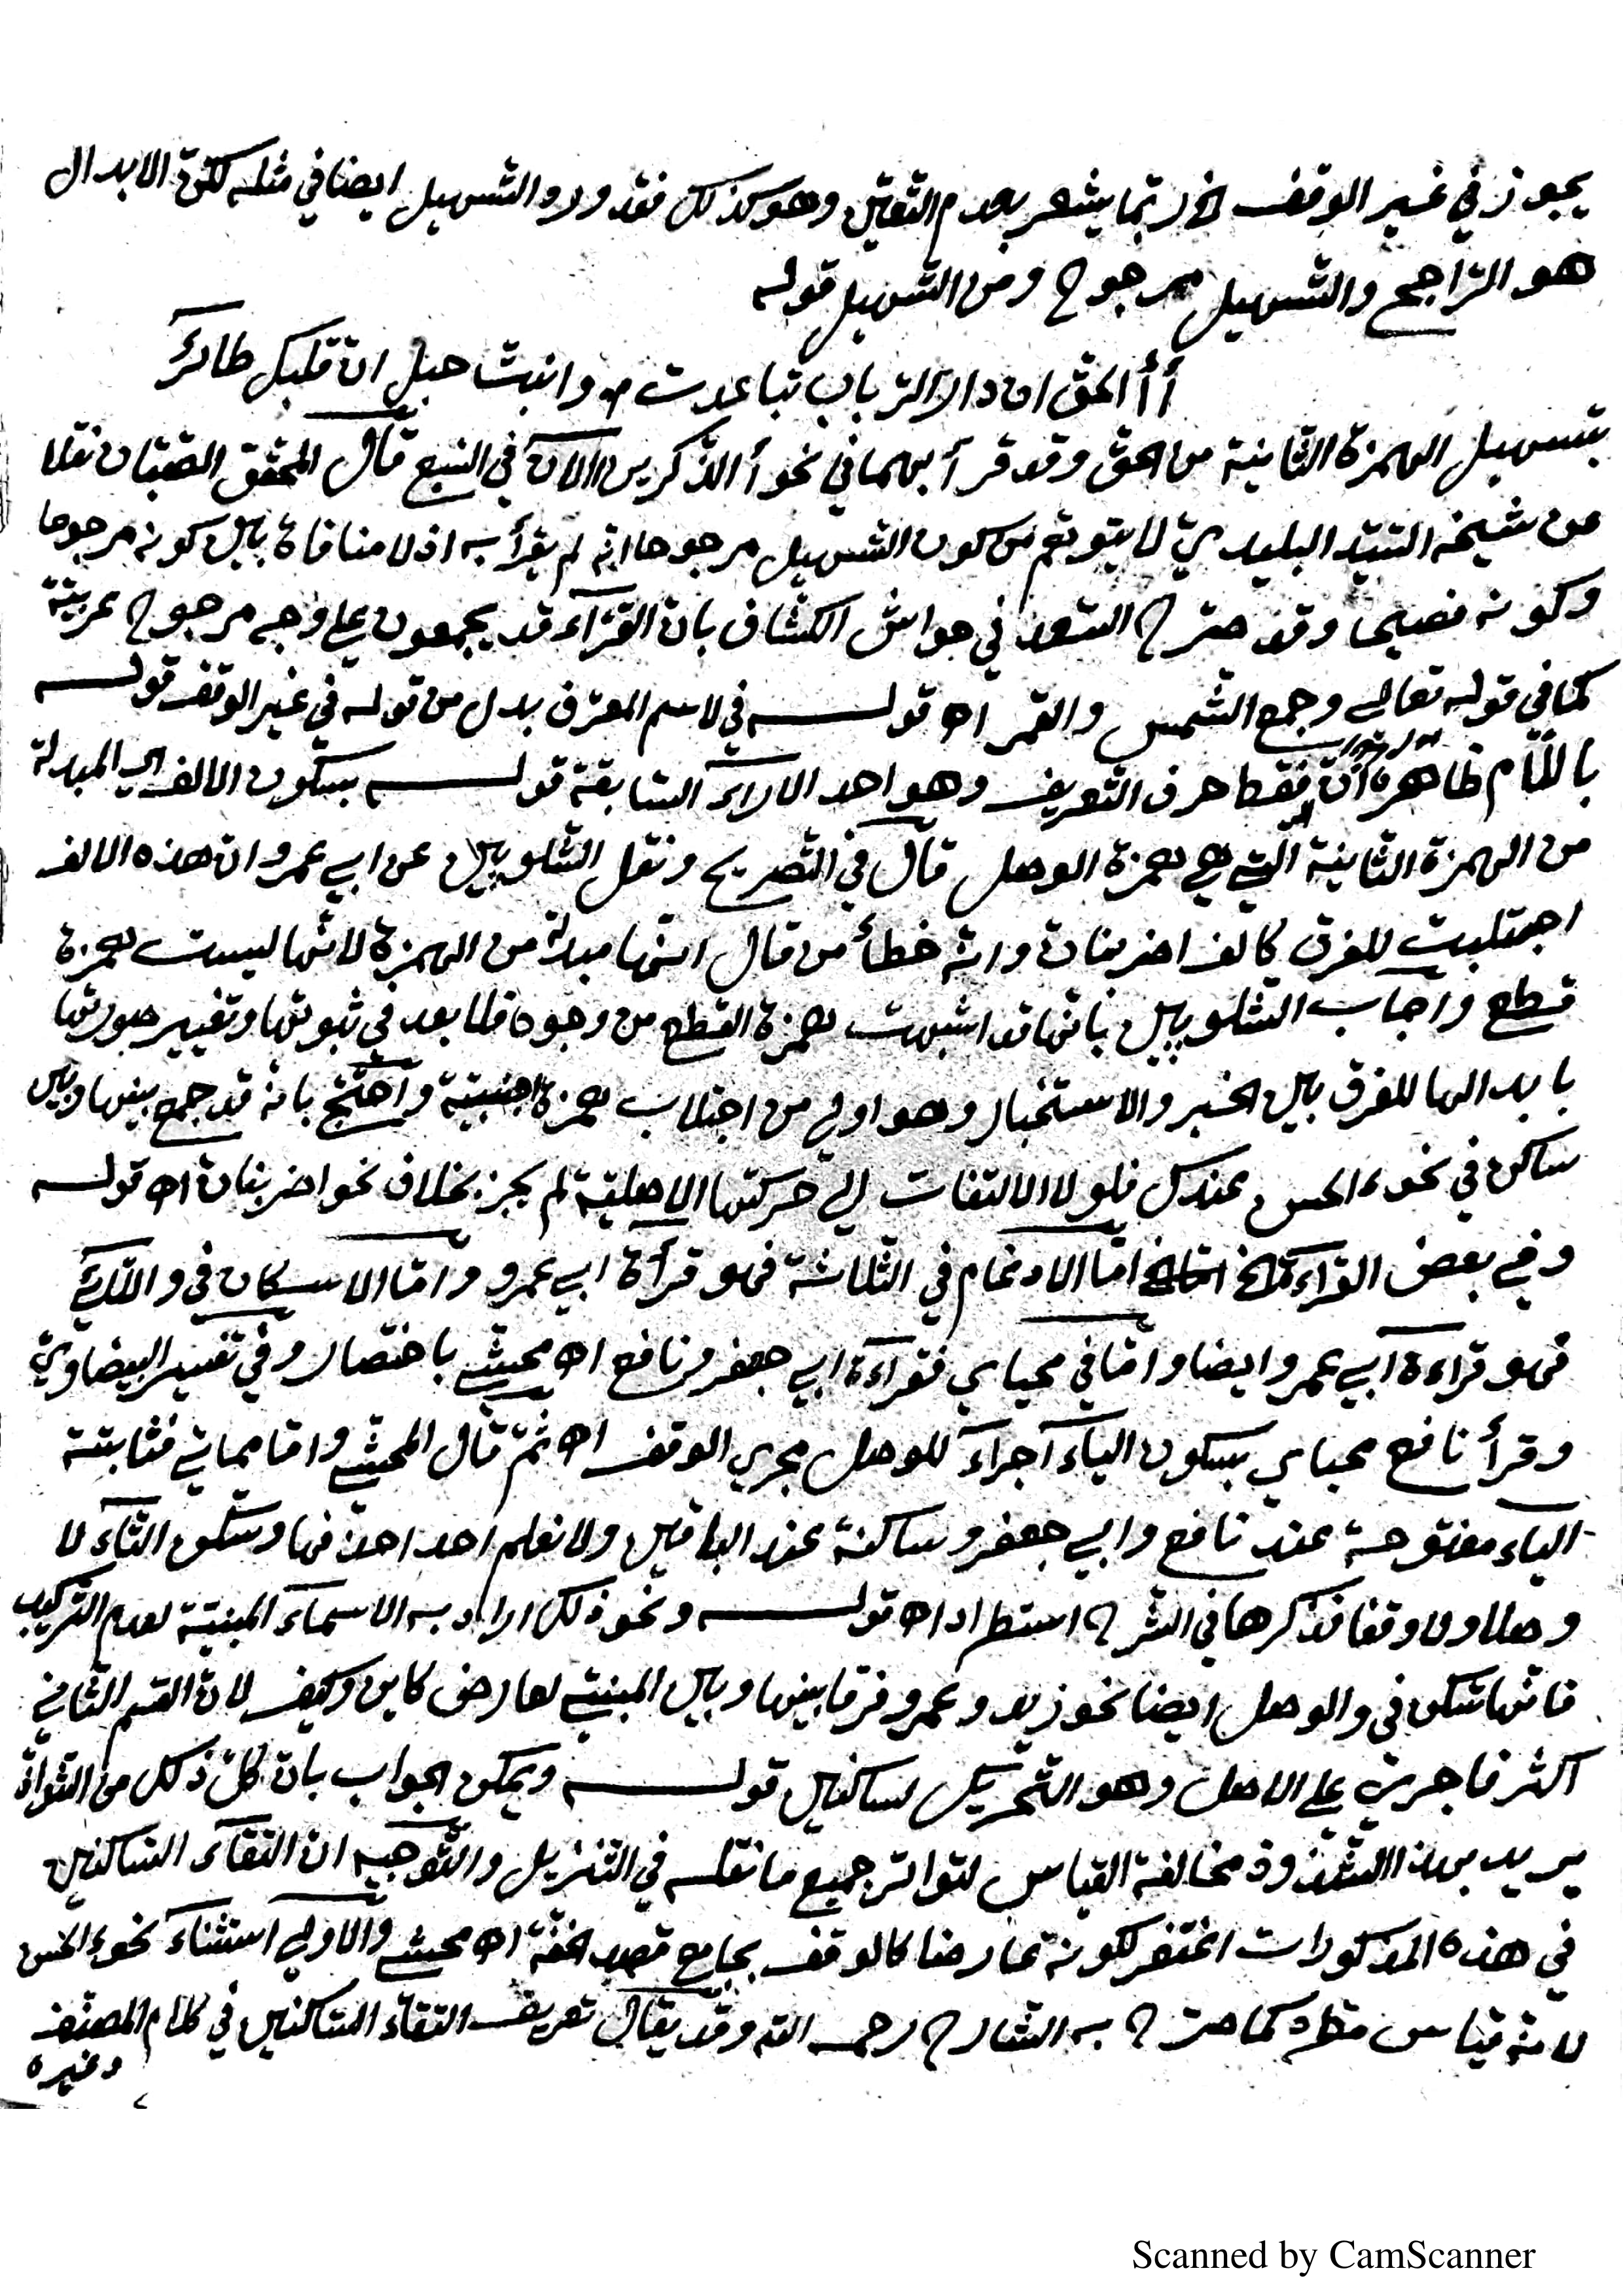 يجوز في غير الوقف الخ ربما يشعر بعدم التعين وهو كذلك فقد ورد التسهيل ايضا في مثله لكن الابدال
هو الراجح والتسهيل مرجوح ومن التسهيل قوله
أألحق ان دار الرباب تباعدت او انبت حبل ان قلبك طائر
بتسهيل الهمزة الثانية من الحق وقد قرأ بهما في نحو أالذكرين االآن في السبع قال المحقق الصبان نقلا
عن شيخه السيد البليدي لا يتوهم من كون التسهيل مرجوحا انه لم يقرأ به اذ لا منافاة بين كونه مرجوحا
وكونه فصيحا وقد صرح السعد في حواشي الكشاف بان القرآء قد يجمعون على وجه مرجوح عربية
كما في قوله تعالى وجمع الشمس والقمر اه قوله في لاسم المعرف بدل من قوله في غير الوقف قوله
باللام ظاهره ان فقط حرف التعريف وهو احد الارآء السابقة قوله بسكون الالف اي المبدلة
من الهمزة الثانية التي هي همزة الوصل قال في التصريح ونقل الشلوبين عن ابي عمرو ان هذه الالف
اجتلبت للفرق كالف اضربنان وانه خطأ من قال انها مبدلة من الهمزة لانها ليست همزة
قطع واجاب الشلوبين بانها قد اشبهت همزة القطع من وجوه فلا بعد في ثبوتها وتغيير صورتها
بابدالها للفرق بين الخبر والاستخبار وهو اولى من اجتلاب همزة اجنبية واحتج بانه قد جمع بينها وبين
ساكن في نحو ءالحسن عندك فلولا الالتفات الى حركتها الاصلية لم يجز بخلاف نحو اضربنان اه قوله
وفي بعض القرآءة الخ اما الادغام في الثلاثة فهو قرأة ابي عمرو واما الاسكان في واللائي
فهو قراءة ابي عمرو ايضا واما في محياي فقرآءة ابي جعفر ونافع اه محشي باختصار وفي تفسير البيضاوي
وقرأ نافع محياي بسكون الياء اجرآء للوصل مجرى الوقف اه ثم قال المحشي واما مماتي فثابتة
الياء مفتوحة عند نافع وابي جعفر وساكنة عند الباقين ولا نعلم احد احذفها وسكون التآء لا
وصلا ولا وقفا فذكرها في الشرح استطرادا اه قوله ونحو ذلك اراد به الاسمآء المبنية لعدم التركيب
فانها تسكن في والوصل ايضا نحو زيد وعمرو فرقا بينها وبين المبني لعارض كاين وكيف لان القسم الثاني
اكثر فاجري على الاصل وهو التحريك لساكنين قوله ويمكن الجواب بان كل ذلك من الشواذ
يريد بهذا الشذوذ مخالفة القياس لتواتر جميع ما نقله في التنزيل والتوجيه ان التقآء الساكنين
في هذه المذكورات اغتفر لكونه عارضا كالوقف بجامع قصد الخفة اه محشي والاولى استثنآء نحو ءالحسن
لانه قياس مطرد كما صرح به الشارح رحمه الله وقد يقال تعريف التقاء الساكنين في كلام المصنف
وغيره
Scanned by CamScanner